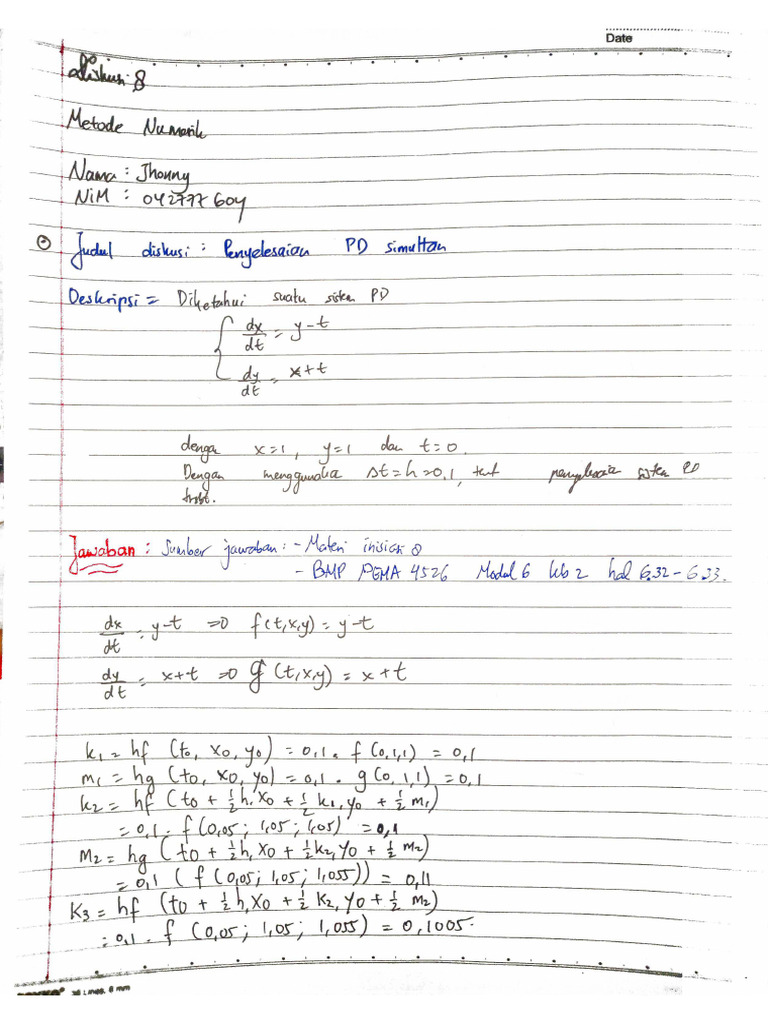 Date
Diskusi 8
Metode Numerik
Nama : Jhonny
NiM : 042777604
Judul diskusi : Penyelesaian PD simultan
Deskripsi = Diketahui suatu sistem PD
dx/dt = y-t
dy/dt = x+t
dengan x=1, y=1 dan t=0.
Dengan menggunakan Δt=h=0,1, tent penyelesaian sistem PD
trsbt.
Jawaban : Sumber jawaban : - Materi inisiasi 8
- BMP PEMA 4526 Modul 6 kb 2 hal 6.32-6.33.
dx/dt = y-t => f(t,x,y) = y-t
dy/dt = x+t => g(t,x,y) = x+t
k₁ = hf (t₀, x₀, y₀) = 0,1 . f(0,1,1) = 0,1
m₁ = hg (t₀, x₀, y₀) = 0,1 . g(0,1,1) = 0,1
k₂ = hf (t₀ + ½h, x₀ + ½k₁, y₀ + ½m₁)
= 0,1 . f(0,05 ; 1,05 ; 1,05) = 0,1
m₂ = hg (t₀ + ½h, x₀ + ½k₂, y₀ + ½m₂)
= 0,1 (f (0,05; 1,05 ; 1,055)) = 0,11
K₃ = hf (t₀ + ½h, x₀ + ½k₂, y₀ + ½m₂)
= 0,1 . f (0,05 ; 1,05 ; 1,055) = 0,1005.
Lines, 8 mm